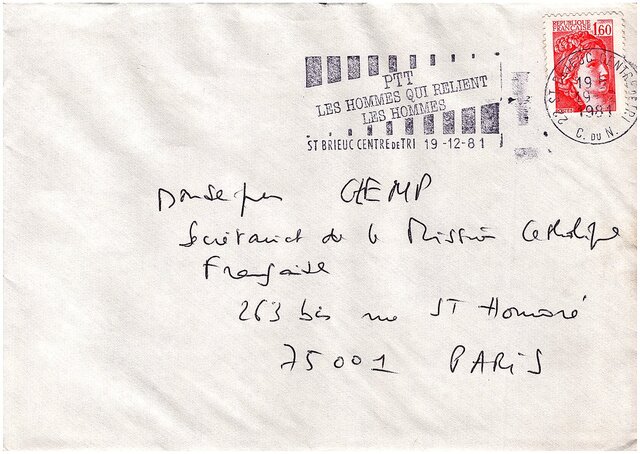 REPUBLIQUE FRANÇAISE 1,60
PTT
LES HOMMES QUI RELIENT
LES HOMMES
ST BRIEUC CENTRE DE TRI 19-12-81
22 ST BRIEUC CENTRE DE TRI
19 H
19-12
1981
C. DU N.
CHEMP
Secrétariat de la Mission Catholique
Française
263 bis rue ST Honoré
75001 PARIS